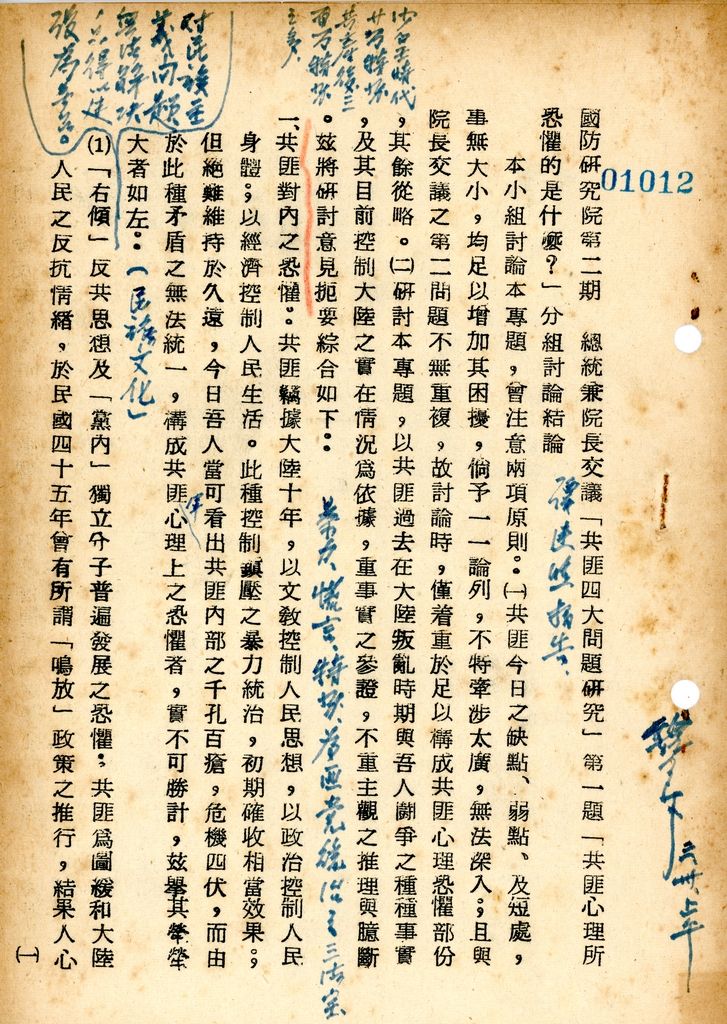 國防研究院第二期　總統兼院長交議「共匪四大問題研究」第一題「共匪心理所
恐懼的是什麼？」分組討論結論
本小組討論本專題，曾注意兩項原則。㈠共匪今日之缺點、弱點、及短處，
事無大小，均足以增加其困擾，倘予一一論列，不特牽涉太廣，無法深入；且與
院長交議之第二問題不無重複，故討論時，僅着重於足以構成共匪心理恐懼部份
，其餘從略。㈡研討本專題，以共匪過去在大陸叛亂時期與吾人鬪爭之種種事實
，及其目前控制大陸之實在情況為依據，重事實之參證，不重主觀之推理與臆斷
。茲將研討意見扼要綜合如下：
一、共匪對內之恐懼。共匪竊據大陸十年，以文教控制人民思想，以政治控制人民
身體，以經濟控制人民生活。此種控制鎮壓之暴力統治，初期確收相當效果，
但絕難維持於久遠，今日吾人當可看出共匪內部之千孔百瘡，危機四伏，而由
於此種矛盾之無法統一，構成共匪心理上之恐懼者，實不可勝計，茲舉其犖犖
大者如左：（民族文化）
⑴「右傾」反共思想及「黨內」獨立分子普遍發展之恐懼：共匪為圖緩和大陸
人民之反抗情緒，於民國四十五年曾有所謂「鳴放」政策之推行，結果人心
㈠
01012
對民族主
義問題
無法解決